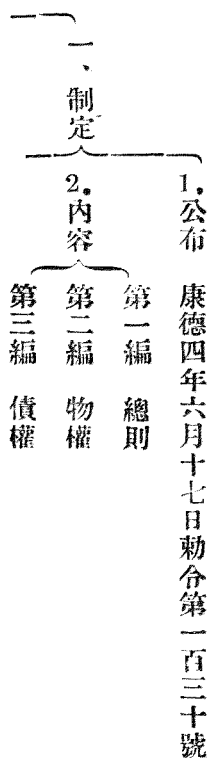 一、制定
1.公布　康德四年六月十七日勅令第一百三十號
2.內容
第一編　總則
第二編　物權
第三編　債權